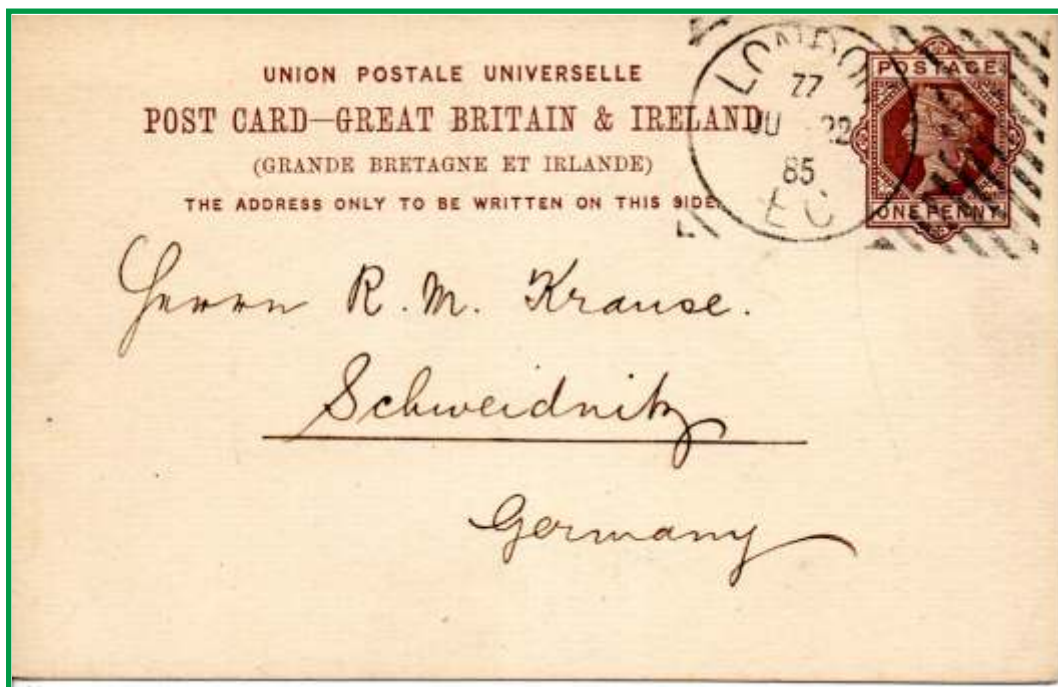 UNION POSTALE UNIVERSELLE
POST CARD—GREAT BRITAIN & IRELAND
(GRANDE BRETAGNE ET IRLANDE)
THE ADDRESS ONLY TO BE WRITTEN ON THIS SIDE.
LONDON
77
22
85
EC
POSTAGE
ONE PENNY
Herrn R. M. Krause.
Schweidnitz
Germany